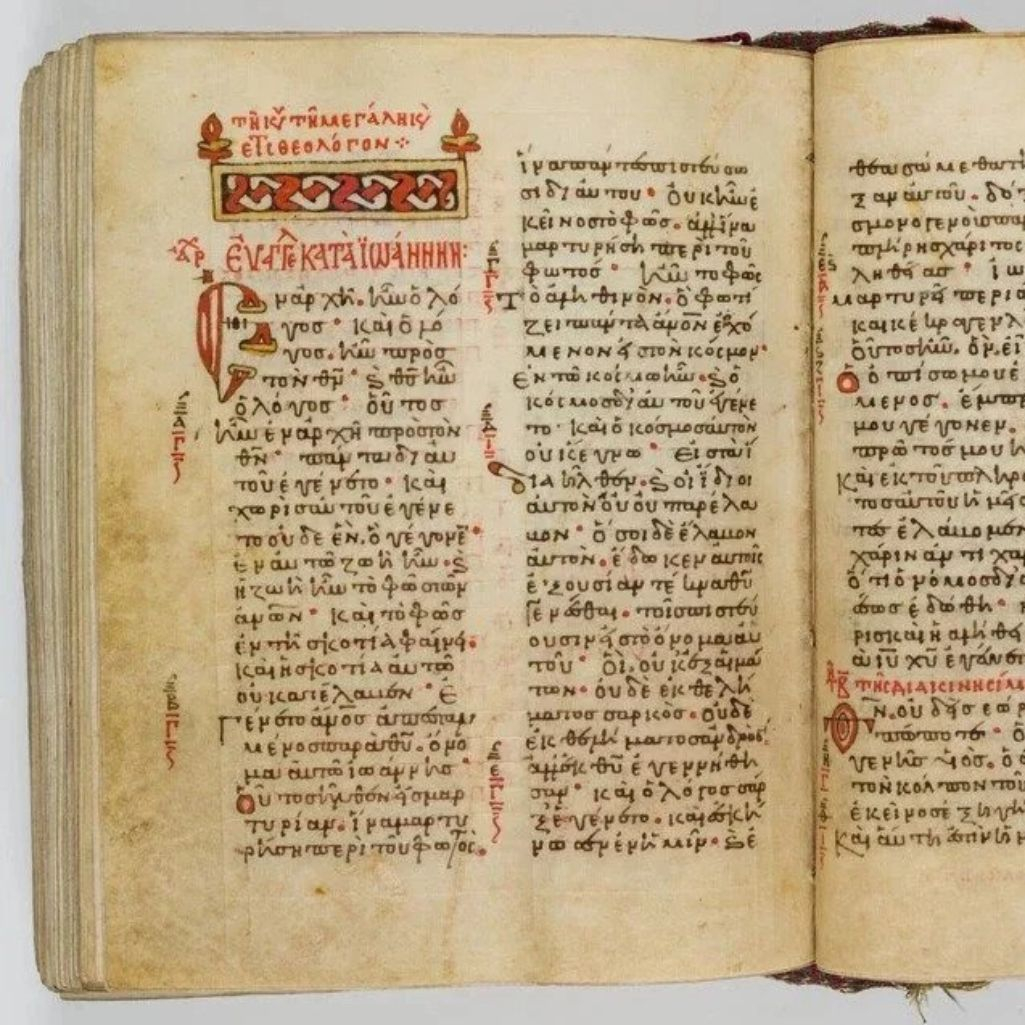 τῆ κυ τῆ μεγάλη κυ
θεολόγον
ΕΥΑΓΓΕ ΚΑΤΑ ΙΩΑΝΝΗΝ:
Ἐν ἀρχῆ. ἦν ὁ λό
γος· καὶ ὁ λό
γος. ἦν πρὸς
τὸν θν· ϗ θς ἦν
ὁ λόγος· οὗτος
ἦν ἐν ἀρχῆ πρὸς τὸν
θν· πάντα δι αὐ
τοῦ ἐγένετο· καὶ
χωρὶς αὐτοῦ ἐγένε
το οὐδὲ ἕν. ὃ γέγονε·
ἐν αὐτῶ ζωὴ ἦν. ϗ
ἡ ζωὴ ἦν τὸ φῶς τῶν
ἀνων· καὶ τὸ φῶς
ἐν τῆ σκοτία φαίνει.
καὶ ἡ σκοτία αὐτὸ
οὐ κατέλαβεν· Ἐ
γένετο ἄνος ἀπεσταλ
μένος παρὰ θυ. ὄνο
μα αὐτῶ ἰωάννης·
Οὗτος ἦλθεν εἰς μαρ
τυρίαν. ἵνα μαρτυ
ρήση περὶ τοῦ φωτός.
ἵνα πάντες πιστεύσω
σι δι αὐτοῦ· οὐκ ἦν ἐ
κεῖνος τὸ φῶς. ἀλλ ἵνα
μαρτυρήση περὶ τοῦ
φωτός· ἦν τὸ φῶς
Τὸ ἀληθινὸν. ὃ φωτί
ζει πάντα ἄνον ἐρχό
μενον εἰς τὸν κόσμον·
Ἐν τῶ κόσμω ἦν. ϗ ὁ
κόσμος δι αὐτοῦ ἐγένε
το· καὶ ὁ κόσμος αὐτὸν
οὐκ ἔγνω· Εἰς τὰ ἴ
δια ἦλθεν. ϗ οἱ ἴδιοι
αὐτὸν οὐ παρέλα
βον· ὅσοι δὲ ἔλαβον
αὐτὸν. ἔδωκεν αὐτοῖς
ἐξουσίαν τέκνα θυ
γενέσθαι. τοῖς πιστεύ
ουσιν εἰς τὸ ὄνομα αὐ
τοῦ· οἳ. οὐκ ἐξ αἱμά
των. οὐδὲ ἐκ θελή
ματος σαρκὸς. οὐδὲ
ἐκ θελήματος ἀνδρός.
ἀλλ ἐκ θυ ἐγεννήθη
σαν· καὶ ὁ λόγος σὰρ
ξ ἐγένετο. καὶ ἐσκή
νωσεν ἐν ἡμῖν. ϗ ἐ
θεασάμεθα τὴ
μονογενοῦς πα
πλήρης χάριτος
ληθείας· ἰω
μαρτυρεῖ περὶ α
καὶ κέκραγε λ
Οὗτος ἦν. ὃν εἶ
ὁ ὀπίσω μου ἐ
μενος. ἔμπρ
μου γέγονεν.
πρῶτός μου ἦ
καὶ ἐκ τοῦ πληρ
τος αὐτοῦ ἡμεῖ
τες ἐλάβομεν
χάριν ἀντὶ χά
ὅτι ὁ νόμος δι
έως ἐδόθη·
ρις καὶ ἡ ἀλήθε
α ιυ χυ ἐγένετ
ΤΗ ΔΙΑΚΙΝΗΣΙΜ
Θν. οὐδεὶς ἑώρ
πώποτε· ὁ
γενὴς υἱός. ὁ
τὸν κόλπον τοῦ
ἐκεῖνος ἐξηγή
Καὶ αὕτη ἐστὶν ἡ μ